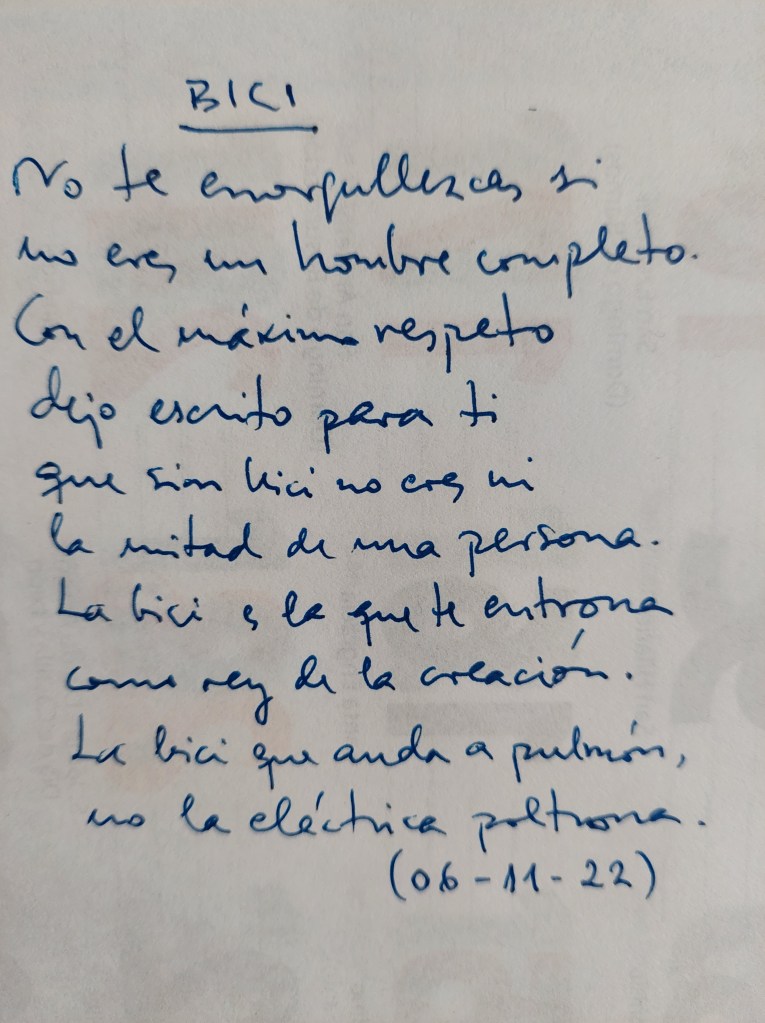 BICI
No te enorgullezcas si
no eres un hombre completo.
Con el máximo respeto
dejo escrito para ti
que sin bici no eres ni
la mitad de una persona.
La bici es la que te entrona
como rey de la creación.
La bici que anda a pulmón,
no la eléctrica poltrona.
(06-11-22)